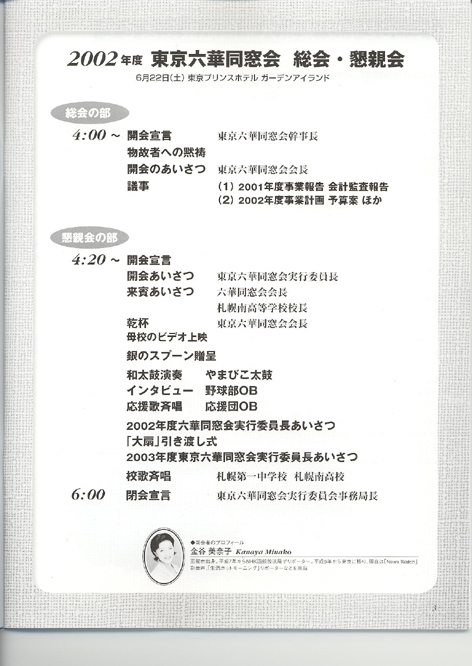 2002年度 東京六華同窓会 総会・懇親会
6月22日(土) 東京プリンスホテル ガーデンアイランド
総会の部
4:00～ 開会宣言 東京六華同窓会幹事長
物故者への黙祷
開会のあいさつ 東京六華同窓会会長
議事 (1) 2001年度事業報告 会計監査報告
(2) 2002年度事業計画 予算案 ほか
懇親会の部
4:20～ 開会宣言
開会あいさつ 東京六華同窓会実行委員長
来賓あいさつ 六華同窓会会長
札幌南高等学校校長
乾杯 東京六華同窓会会長
母校のビデオ上映
銀のスプーン贈呈
和太鼓演奏 やまびこ太鼓
インタビュー 野球部OB
応援歌斉唱 応援団OB
2002年度六華同窓会実行委員長あいさつ
「大扇」引き渡し式
2003年度東京六華同窓会実行委員長あいさつ
校歌斉唱 札幌第一中学校 札幌南高校
6:00 閉会宣言 東京六華同窓会実行委員会事務局長
●司会者のプロフィール
金谷 美奈子 Kanaya Minako
3